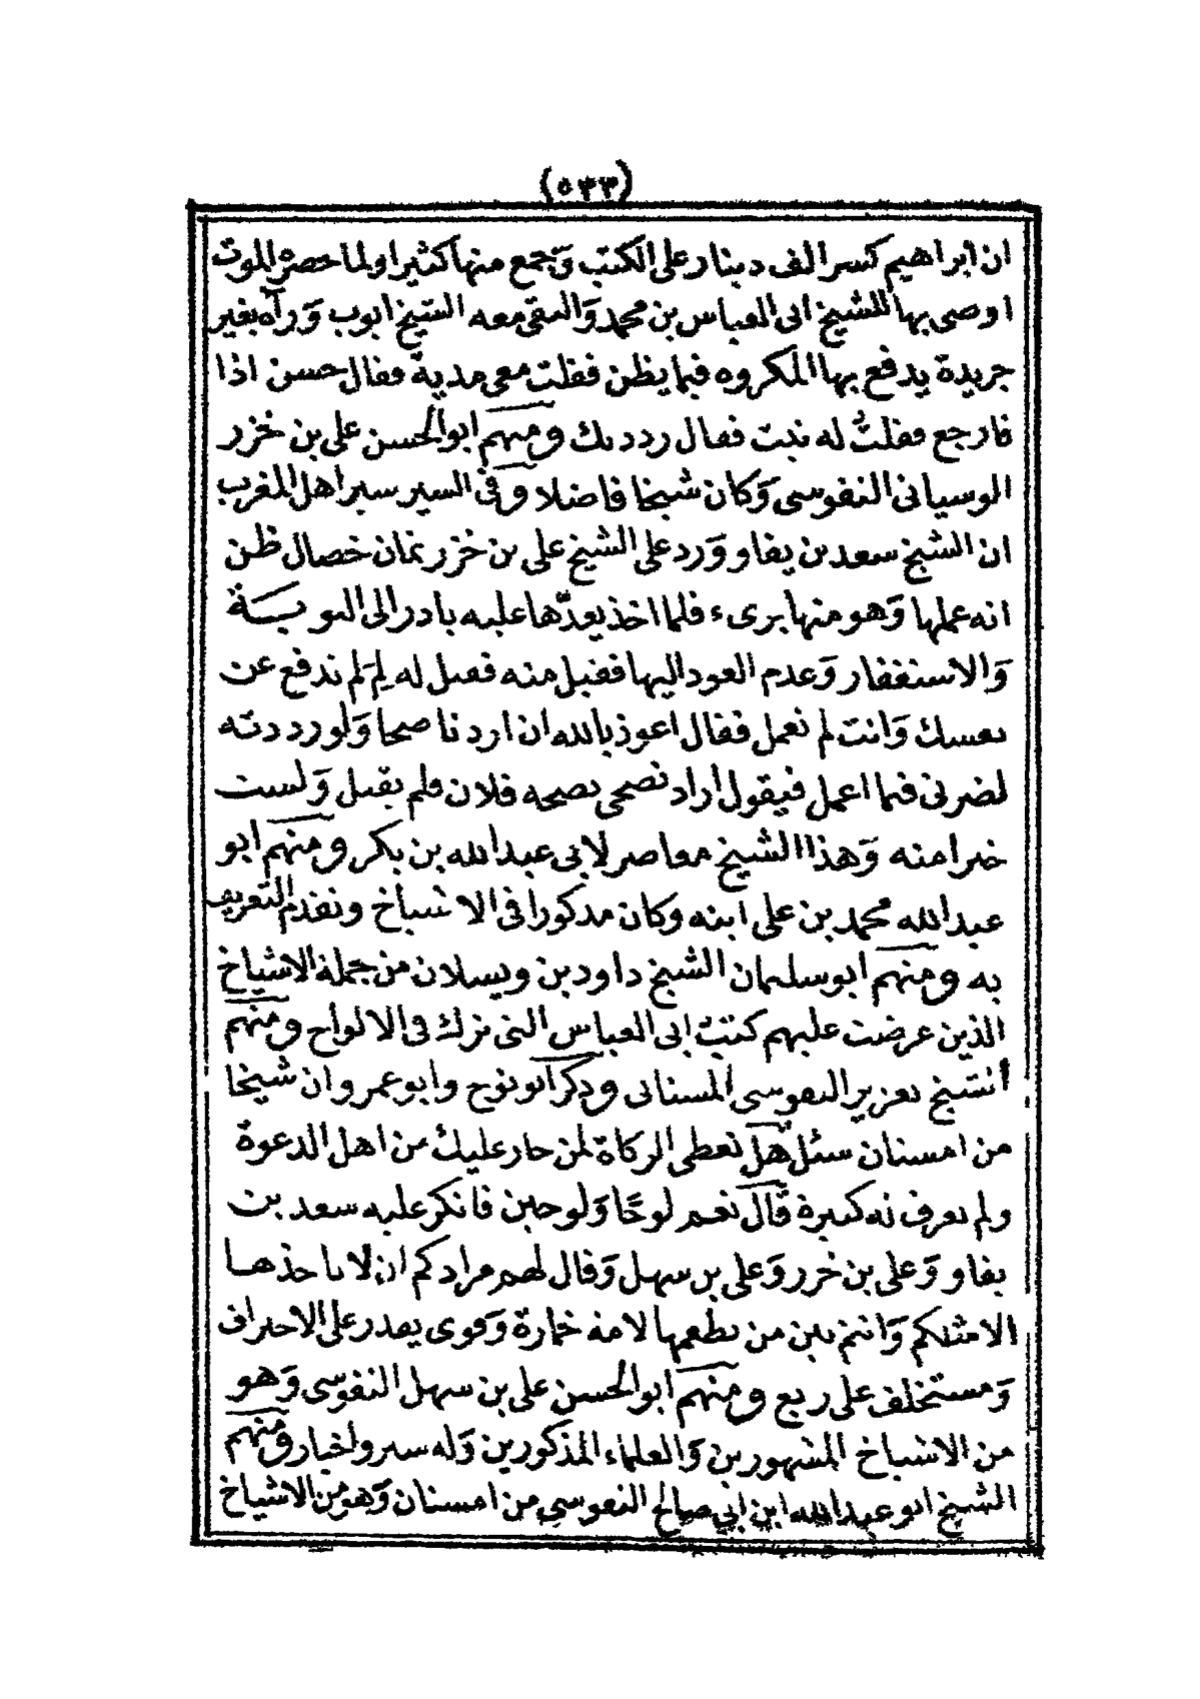 (٥٣٣)
ان ابراهيم كسر الف دينار على الكتب وَجمع منها كثيرا ولما حضره الموت
اوصى بها للشيخ ابى العباس بن محمد وَالتقى معه الشيخ ايوب وَرآه بغير
جريدة يدفع بها المكروه فيما يظن فقلت معى مدية فقال حسن اذا
فارجع فقلت له نبت فقال رددتك ومنهم ابو الحسن على بن خزر
الوسيانى النفوسى وَكان شيخا فاضلا وفى السير سير اهل المغرب
ان الشيخ سعد بن يفاو وَرد على الشيخ على بن خزر ثمان خصال ظن
انه عملها وَهو منها برىء فلما اخذ يعدّها عليه بادر الى التوبـــة
وَالاستغفار وَعدم العود اليها فقبل منه فقيل له لِمَ لم ندفع عن
نفسك وَانت لم تعمل فقال اعوذ بالله ان ارد ناصحا وَلو رددته
لضرنى فيما اعمل فيقول اراد نصحى بصحه فلان فلم يقبل وَلست
خيرا منه وَهذا الشيخ معاصر لابى عبد الله بن بكر ومنهم ابو
عبد الله محمد بن على ابنه وكان مذكورا فى الاشياخ وتقدم التعريف
به ومنهم ابو سليمان الشيخ داود بن ويسلان من جملة الاشياخ
الذين عرضت عليهم كتب ابى العباس التى ترك فى الالواح ومنهم
الشيخ يعزير النفوسى المسنانى وذكر ابو نوح وابو عمرو ان شيخا
من امسنان سئل هل تعطى الزكاة لمن جار عليك من اهل الدعوة
ولم تعرف له كبيرة قال نعم لوحًا وَلوحين فانكر عليه سعد بن
يفاو وَعلى بن خزر وَعلى بن سهل وَقال لهم مرادكم ان لا ياخذها
الا مثلكم وَانتم بين من يطعمها لامه خمارة وَقوى يقدر على الاحترانى
وَمستخلف على ربع ومنهم ابو الحسن على بن سهل النفوسى وَهو
من الاشياخ المشهورين وَالعلماء المذكورين وَله سير واخبار ومنهم
الشيخ ابو عبد الله ابن ابي صالح النفوسي من امسنان وَهو من الاشياخ